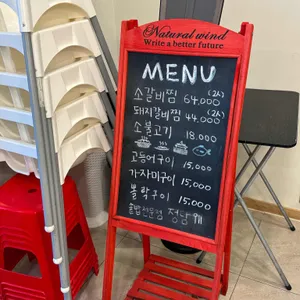 Natural wind
Write a better future
MENU
소갈비찜 64,000 (2人)
돼지갈비찜 44,000 (2人)
소불고기 18,000
고등어구이 15,000
가자미구이 15,000
볼락구이 15,000
솥밥전문점 정담